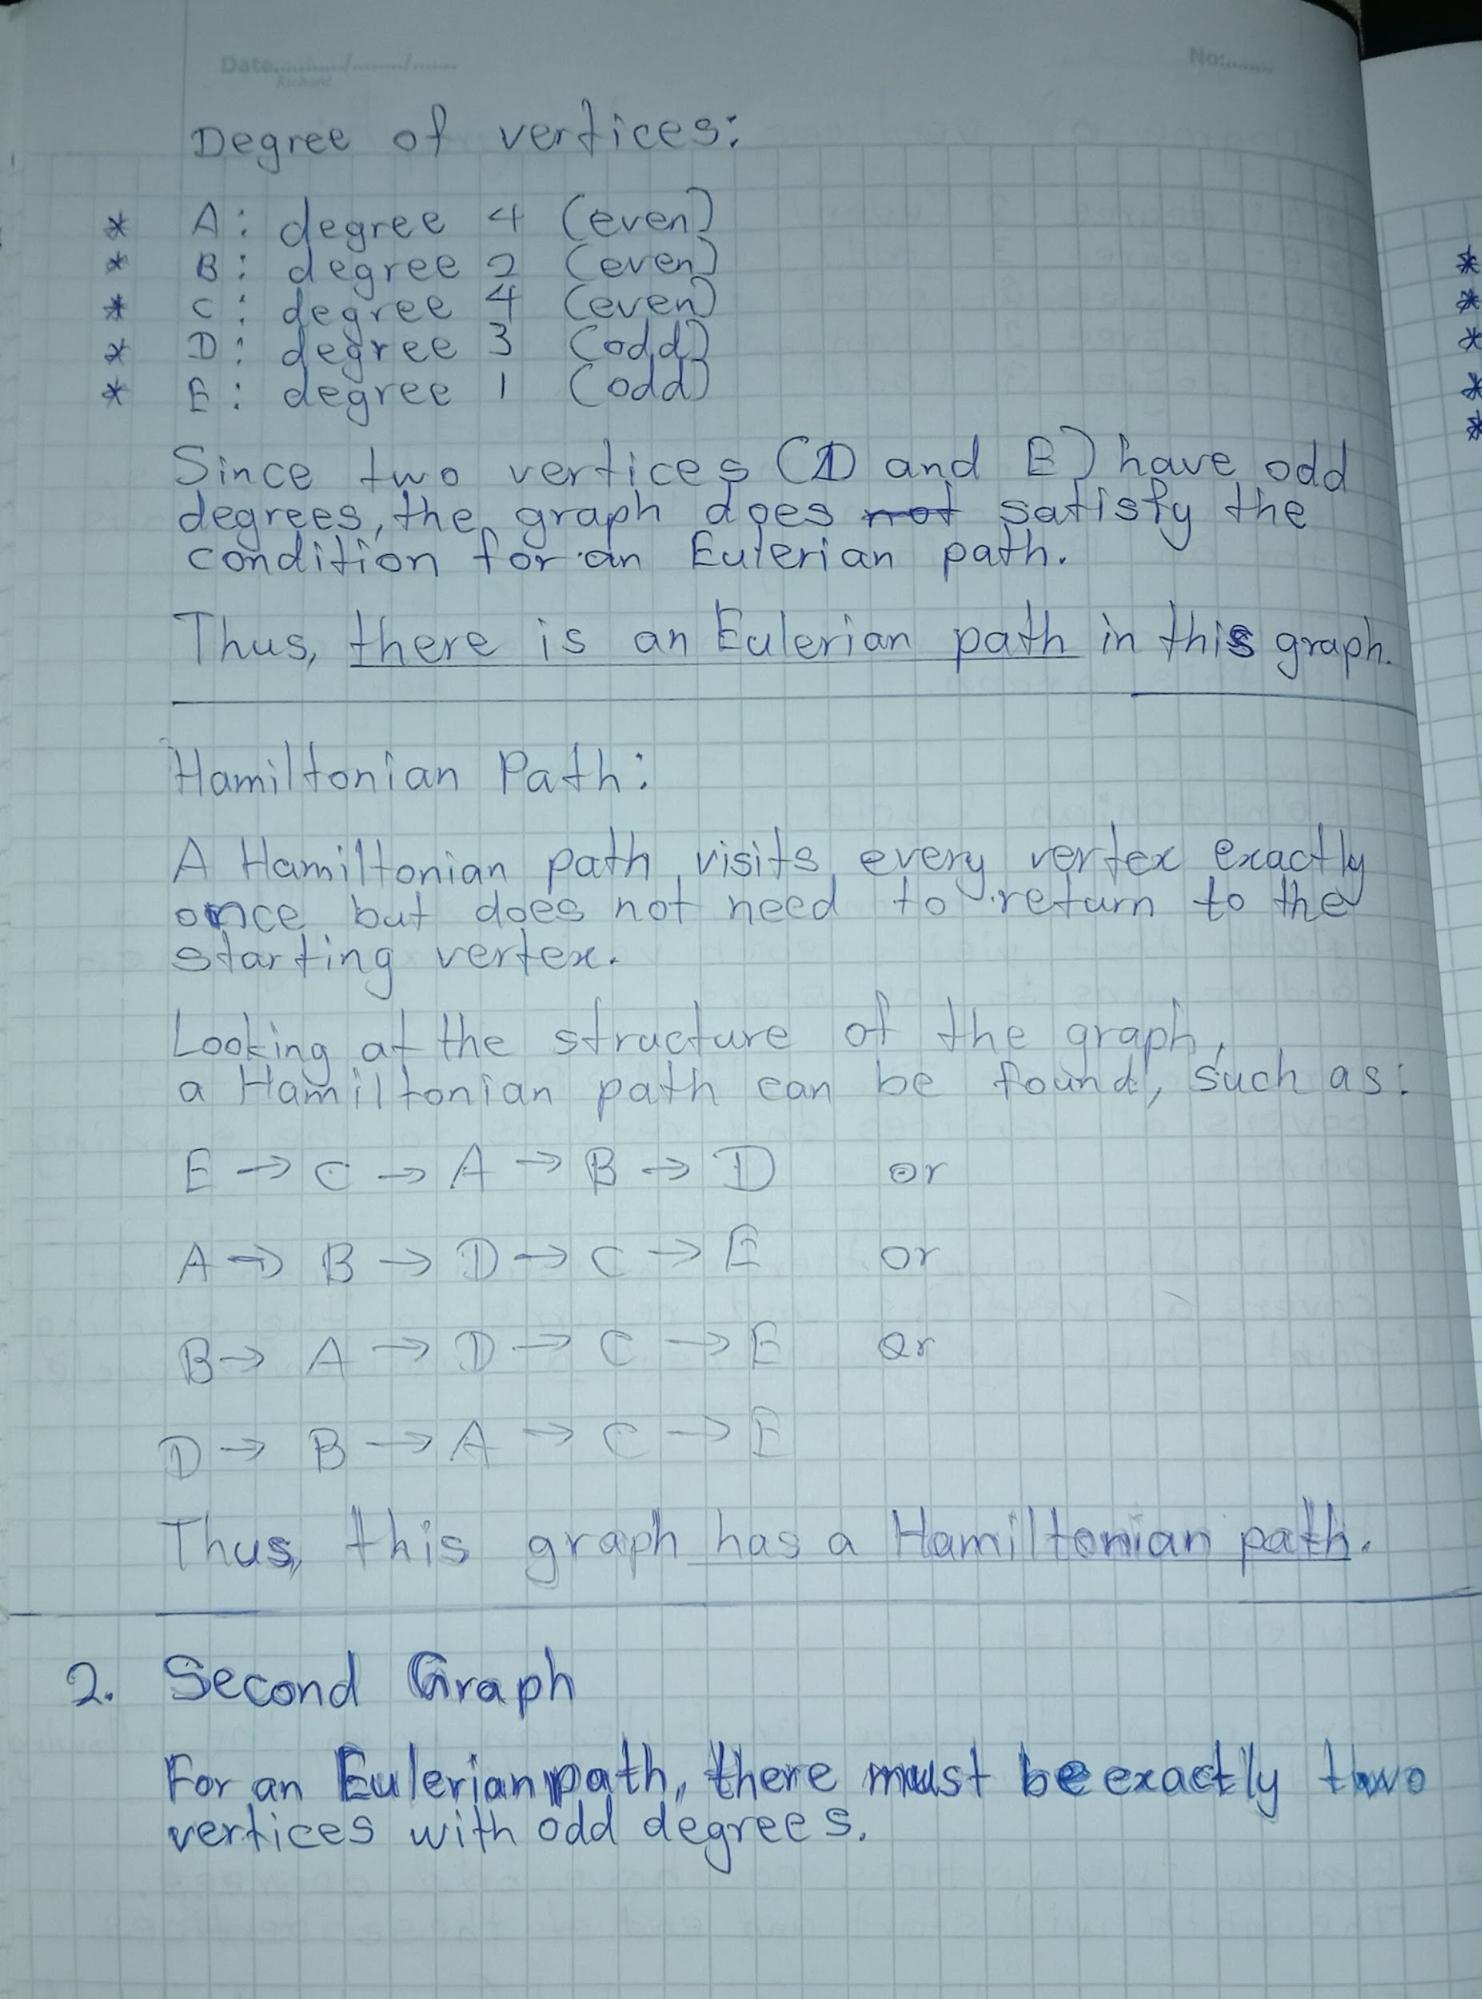 Date......../......../........
No:........
Richard
Degree of vertices:
* A: degree 4 (even)
* B: degree 2 (even)
* C: degree 4 (even)
* D: degree 3 (odd)
* E: degree 1 (odd)
Since two vertices (D and E) have odd
degrees, the graph does not satisfy the
condition for an Eulerian path.
Thus, there is an Eulerian path in this graph.
Hamiltonian Path:
A Hamiltonian path visits every vertex exactly
once but does not need to return to the
starting vertex.
Looking at the structure of the graph,
a Hamiltonian path can be found, such as:
E → C → A → B → D or
A → B → D → C → E or
B → A → D → C → E or
D → B → A → C → E
Thus, this graph has a Hamiltonian path.
2. Second Graph
For an Eulerian path, there must be exactly two
vertices with odd degrees.
*
*
*
*
*